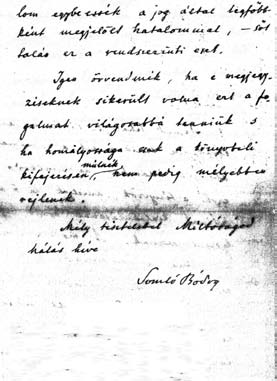 lom egybeessék a jog által legfőbb-
ként megjelölt hatalommal, – sőt
talás ez a rendszerinti eset.
Igen örvendenék, ha e megjegy-
zéseknek sikerült volna ezt a fo-
galmat világosabbá tenniük s
ha homályossága csak a könyvbeli
kifejezésen múlnék, nem pedig mélyebben
rejlenék.
Mély tisztelettel Méltóságod
hálás híve
Somló Bódog